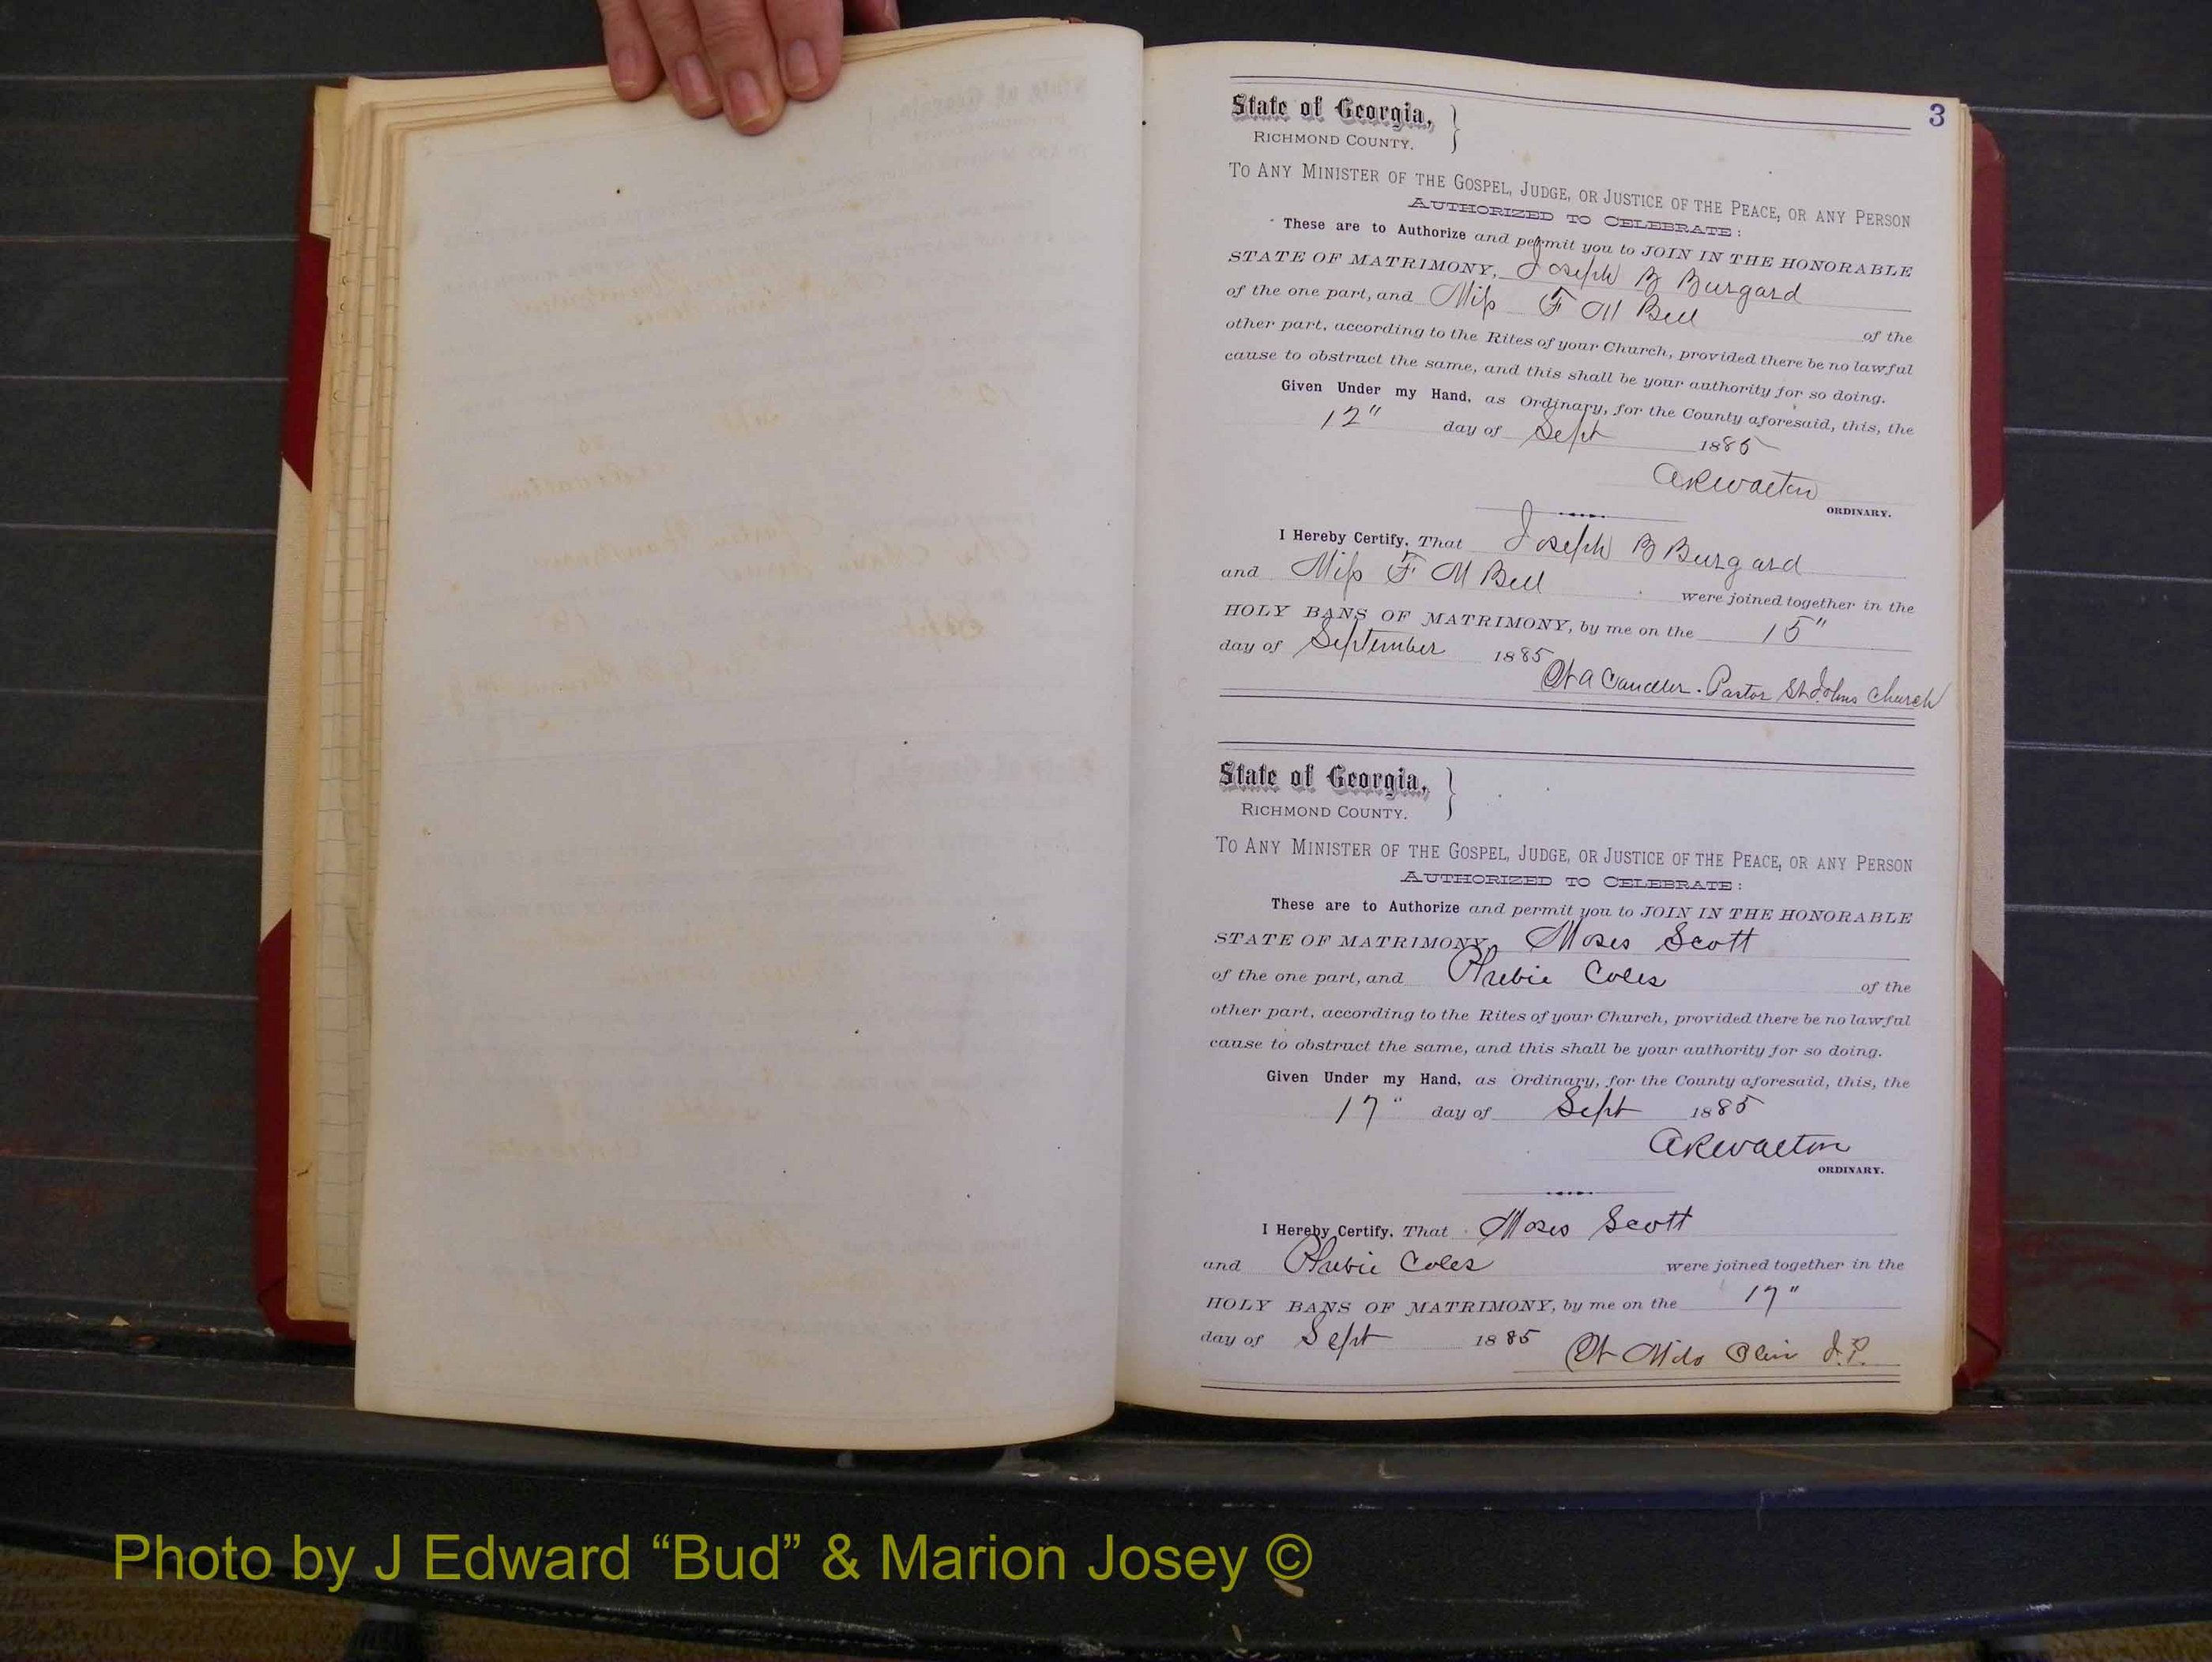 3
State of Georgia, }
RICHMOND COUNTY.
TO ANY MINISTER OF THE GOSPEL, JUDGE, OR JUSTICE OF THE PEACE, OR ANY PERSON
AUTHORIZED TO CELEBRATE:
These are to Authorize and permit you to JOIN IN THE HONORABLE
STATE OF MATRIMONY, Joseph B Burgard
of the one part, and Miss F M Bell of the
other part, according to the Rites of your Church, provided there be no lawful
cause to obstruct the same, and this shall be your authority for so doing.
Given Under my Hand, as Ordinary, for the County aforesaid, this, the
12" day of Sept 1885
A R Walton
ORDINARY.
I Hereby Certify, That Joseph B Burgard
and Miss F M Bell were joined together in the
HOLY BANS OF MATRIMONY, by me on the 15"
day of September 1885
W A Candler. Pastor St Johns Church
State of Georgia, }
RICHMOND COUNTY.
TO ANY MINISTER OF THE GOSPEL, JUDGE, OR JUSTICE OF THE PEACE, OR ANY PERSON
AUTHORIZED TO CELEBRATE:
These are to Authorize and permit you to JOIN IN THE HONORABLE
STATE OF MATRIMONY, Moses Scott
of the one part, and Phebie Coles of the
other part, according to the Rites of your Church, provided there be no lawful
cause to obstruct the same, and this shall be your authority for so doing.
Given Under my Hand, as Ordinary, for the County aforesaid, this, the
17" day of Sept 1885
A R Walton
ORDINARY.
I Hereby Certify, That Moses Scott
and Phebie Coles were joined together in the
HOLY BANS OF MATRIMONY, by me on the 17"
day of Sept 1885 Olin J.P.
Photo by J Edward “Bud” & Marion Josey ©